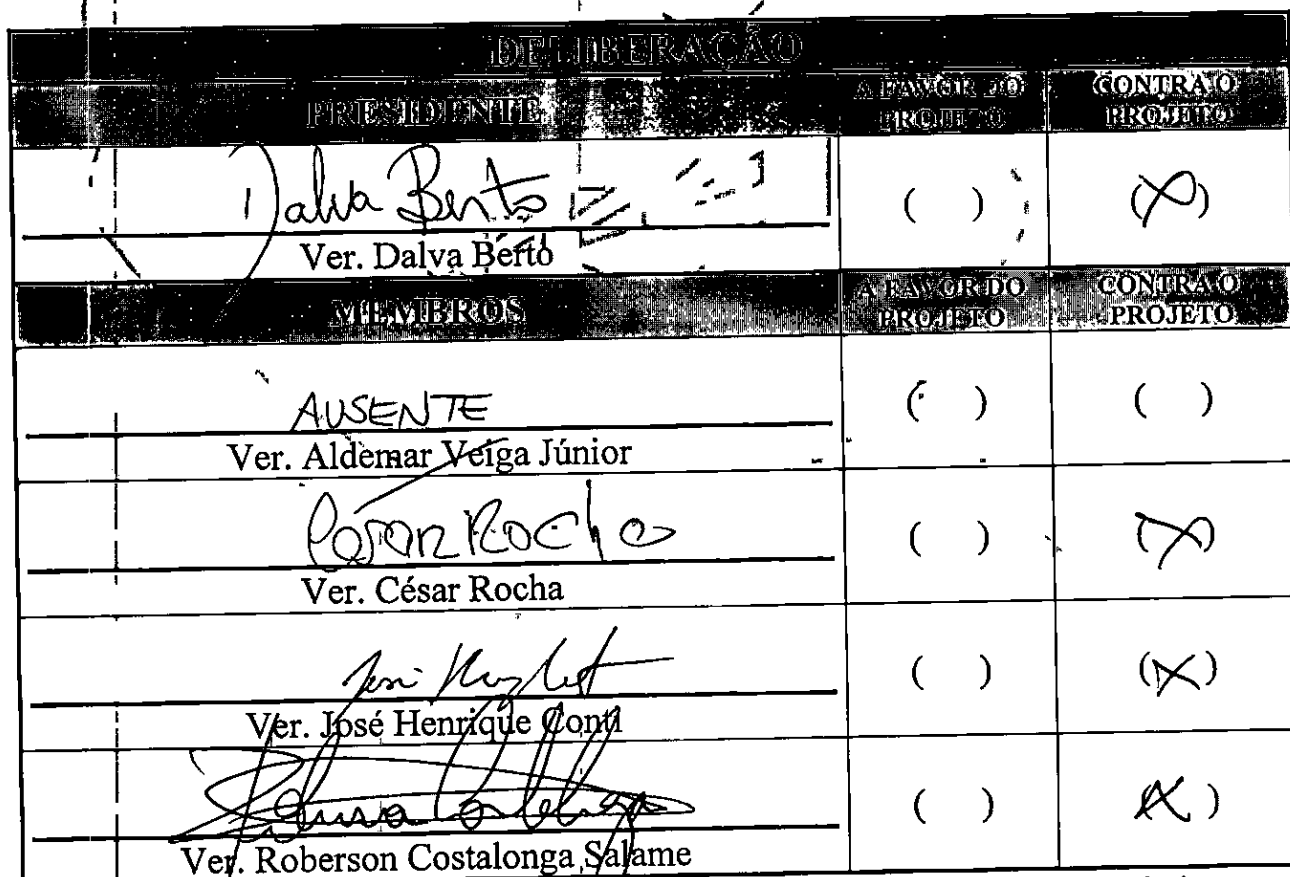 DELIBERAÇÃO
PRESIDENTE A FAVOR DO PROJETO CONTRA O PROJETO
Dalva Berto ( ) (X)
Ver. Dalva Berto
MEMBROS A FAVOR DO PROJETO CONTRA O PROJETO
AUSENTE ( ) ( )
Ver. Aldemar Veiga Júnior
César Rocha ( ) (X)
Ver. César Rocha
( ) (X)
Ver. José Henrique Conti
( ) (X)
Ver. Roberson Costalonga Salame